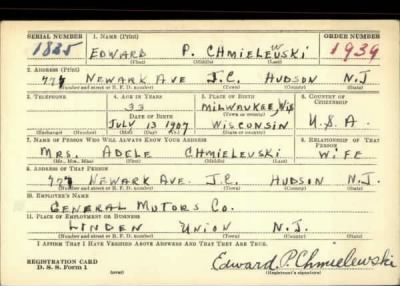 SERIAL NUMBER 1. NAME (Print) ORDER NUMBER
1835 EDWARD P. CHMIELEWSKI 1939
(First) (Middle) (Last)
2. ADDRESS (Print)
777 NEWARK AVE J.C. HUDSON N.J
(Number and street or R. F. D. number) (Town) (County) (State)
3. TELEPHONE 4. AGE IN YEARS 5. PLACE OF BIRTH 6. COUNTRY OF CITIZENSHIP
33 MILWAUKEE, Wis
DATE OF BIRTH (Town or county)
JULY 13 1907 WISCONSIN U.S.A.
(Exchange) (Number) (Mo.) (Day) (Yr.) (State or country)
7. NAME OF PERSON WHO WILL ALWAYS KNOW YOUR ADDRESS 8. RELATIONSHIP OF THAT PERSON
MRS. ADELE CHMIELEVSKI WIFE
(Mr., Mrs., Miss) (First) (Middle) (Last)
9. ADDRESS OF THAT PERSON
777 NEWARK AVE. J.C. HUDSON N.J.
(Number and street or R. F. D. number) (Town) (County) (State)
10. EMPLOYER'S NAME
GENERAL MOTORS Co.
11. PLACE OF EMPLOYMENT OR BUSINESS
LINDEN UNION N.J.
(Number and street or R. F. D. number) (Town) (County) (State)
I AFFIRM THAT I HAVE VERIFIED ABOVE ANSWERS AND THAT THEY ARE TRUE.
REGISTRATION CARD Edward. P. Chmielewski
D. S. S. Form 1 (over) (Registrant's signature)